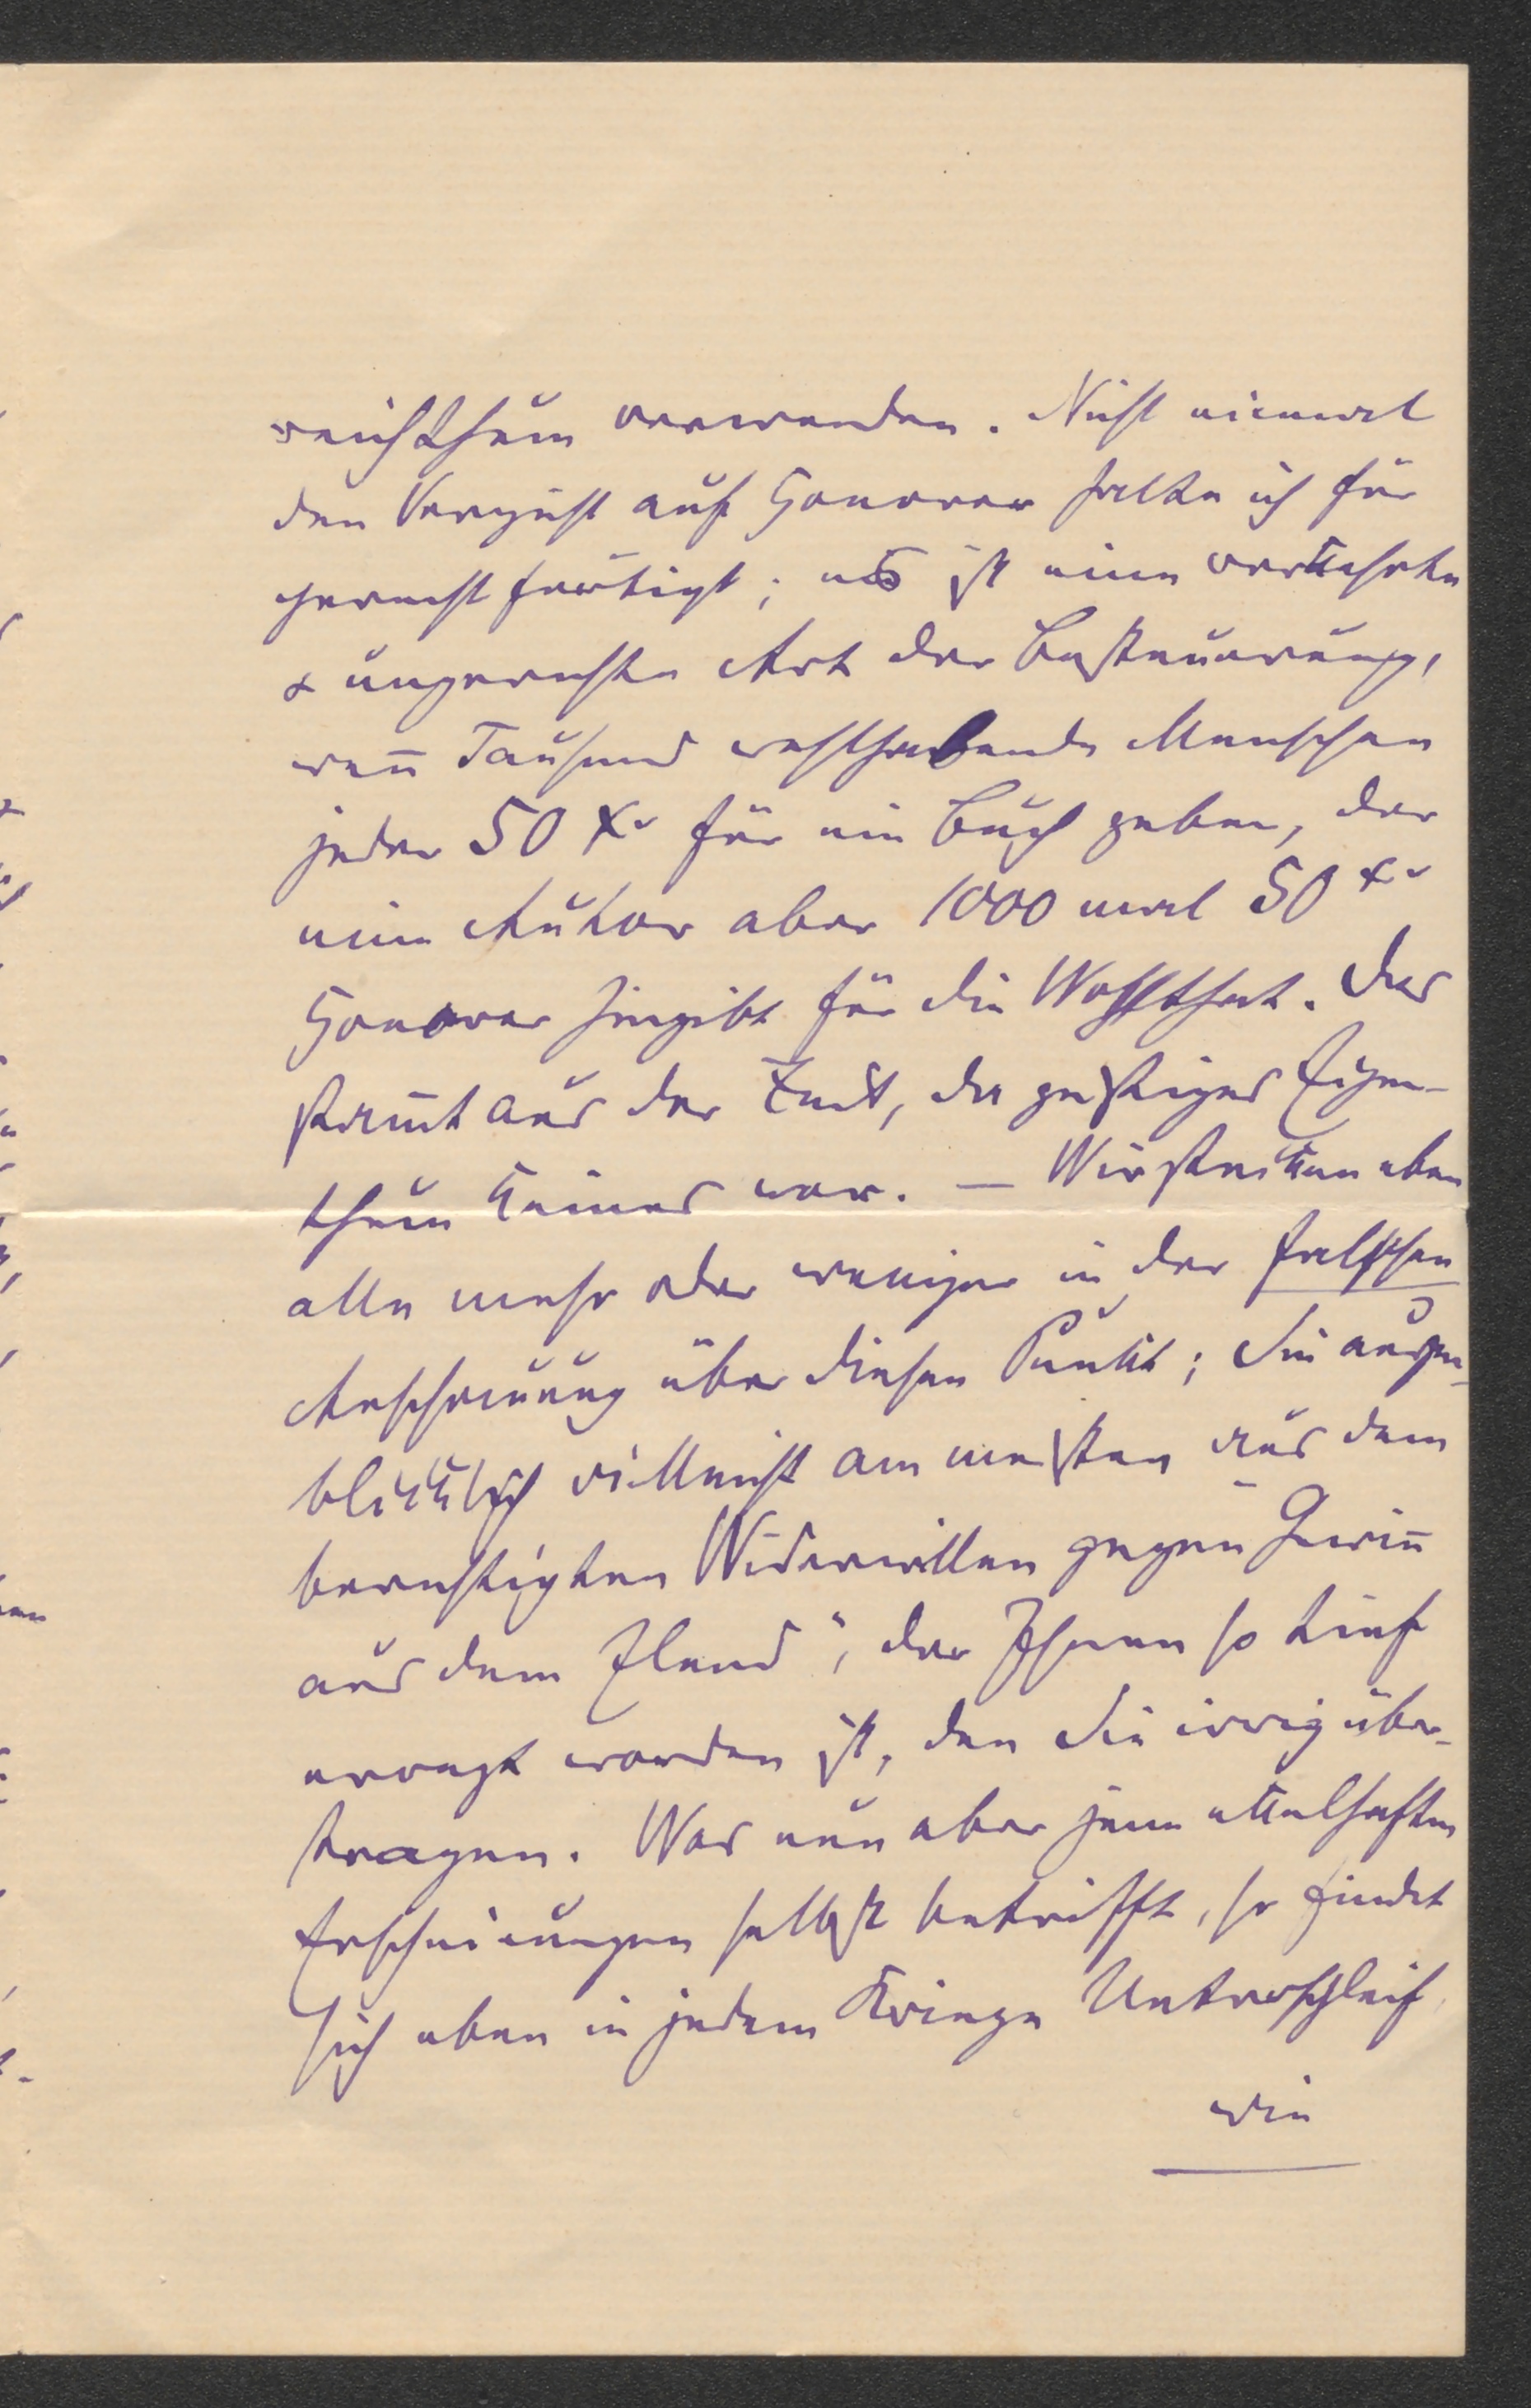 reichthum verwenden. Nicht einmal
den Verzicht auf Honorar halte ich für
gerechtfertigt; es ist eine verkehrte
& ungerechte Art der Besteuerung,
weñ Tausend wohlhabende Menschen
jeder 50 Xr für ein Buch geben, der
eine Autor aber 1000 mal 50 Xr
Honorar hingibt für die Wohlthat. Das
stam̄t aus der Zeit, da geistiges Eigen-
thum keines war. — Wir stecken eben
alle mehr oder weniger in der falschen
Anschauung über diesen Punkt; Sie augen-
blicklich vielleicht am meisten aus dem
berechtigten Widerwillen gegen Gewiñ
aus dem Elend", der Ihnen so tief
erregt worden ist, den Sie irrig über-
tragen. Was nun aber jene ekelhaften
Erscheinungen selbst betrifft, so findet
sich eben in jedem Kriege Unterschleif
wie